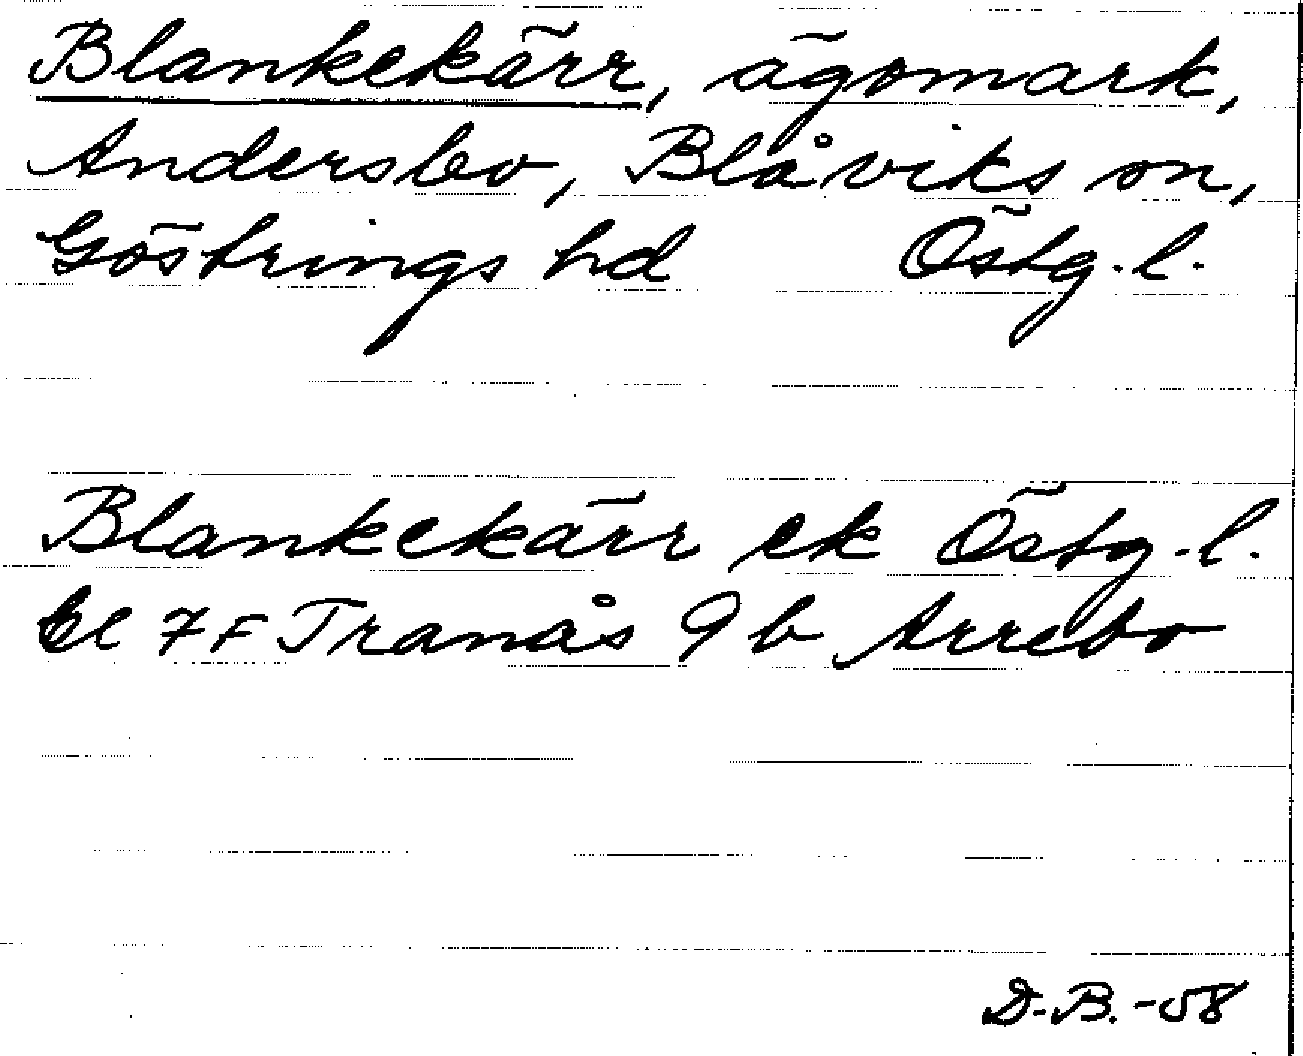 Blankekärr, ägomark,
Andersbo, Blåviks sn,
Göstrings hd Östg. l.
Blankekärr ek Östg. l.
bl 7F Tranås 9b Arrebo
D.B. -58